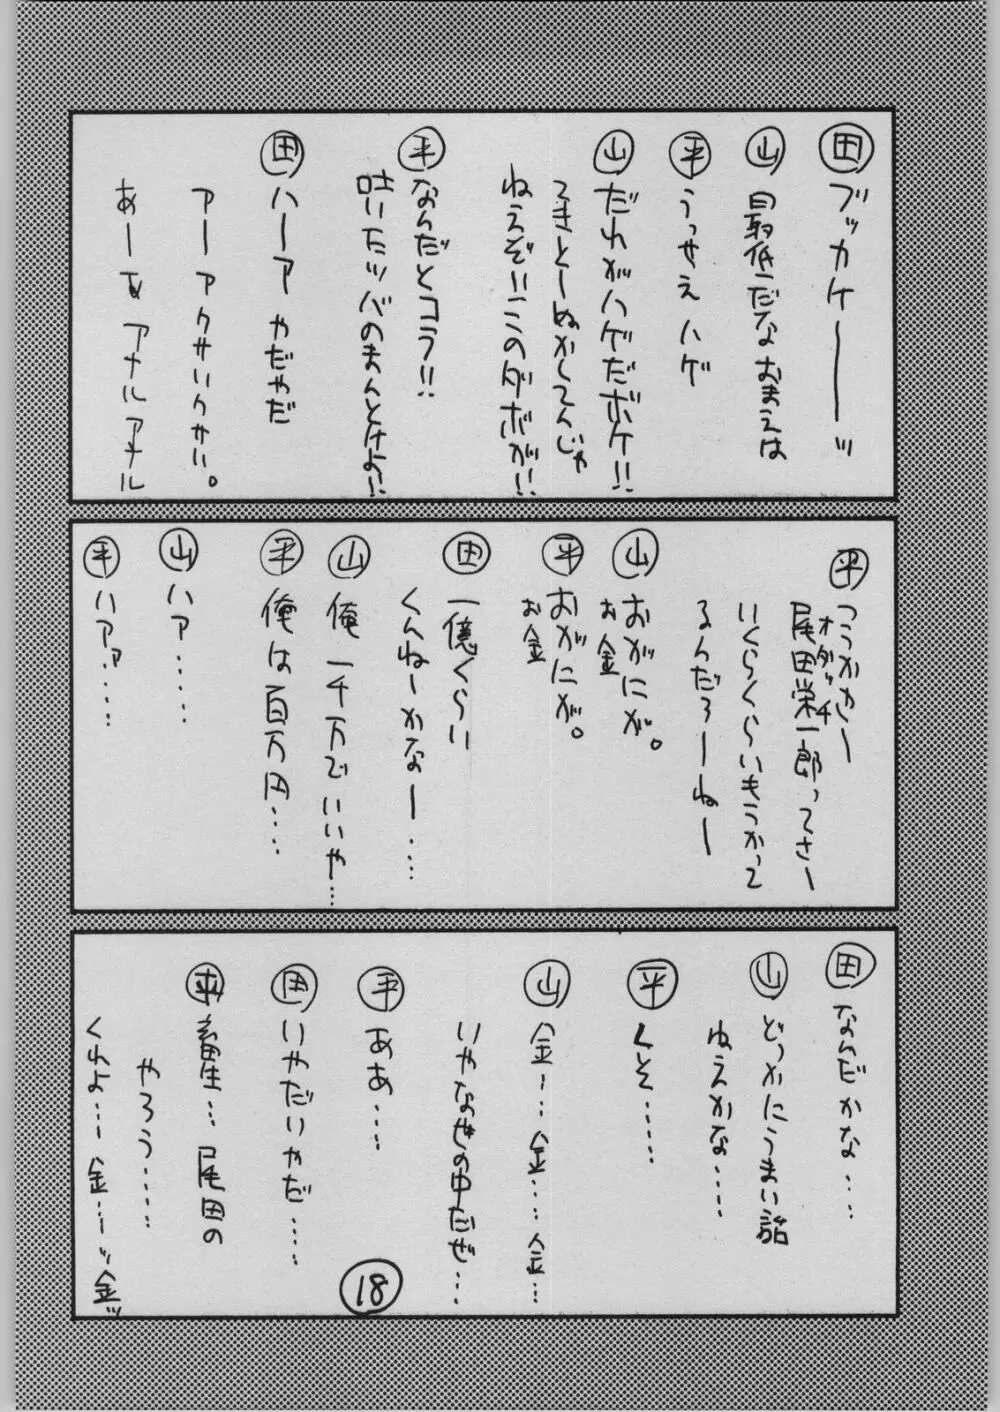 田 ブッカケーーーッ
山 最低だなおまえは
平 うっせえハゲ
山 だれがハゲだボケ!!
てきとーぬかしてんじゃ
ねえぞ!!このダボが!!
平 なんだとコラ!!
吐いたツバのまんとけよ!!
田 ハーア やだやだ
アー アクサいクサい。
あーあ アナルアナル
平 つうかさー
尾田栄一郎ってさー
オダッチ
いくらくらいもうかって
るんだろーねー
山 おがにが。
お金
平 おがにが。
お金
田 一億くらい
くんねーかなー・・・
山 俺 一千万でいいや・・・
平 俺は百万円・・・・
山 ハア・・・・・
平 ハアァ・・・・
田 なんだかな・・・・
山 どっかにうまい話
ねえかな・・・・・
平 くそ・・・・・
山 金・・・金・・・金・・・
いやなぜの中だぜ・・・
平 ああ・・・・
田 いやだいやだ・・・・
平 畜生・・・尾田の
やろう・・・・・
くれよ・・・金・・・ッ金ッ
18